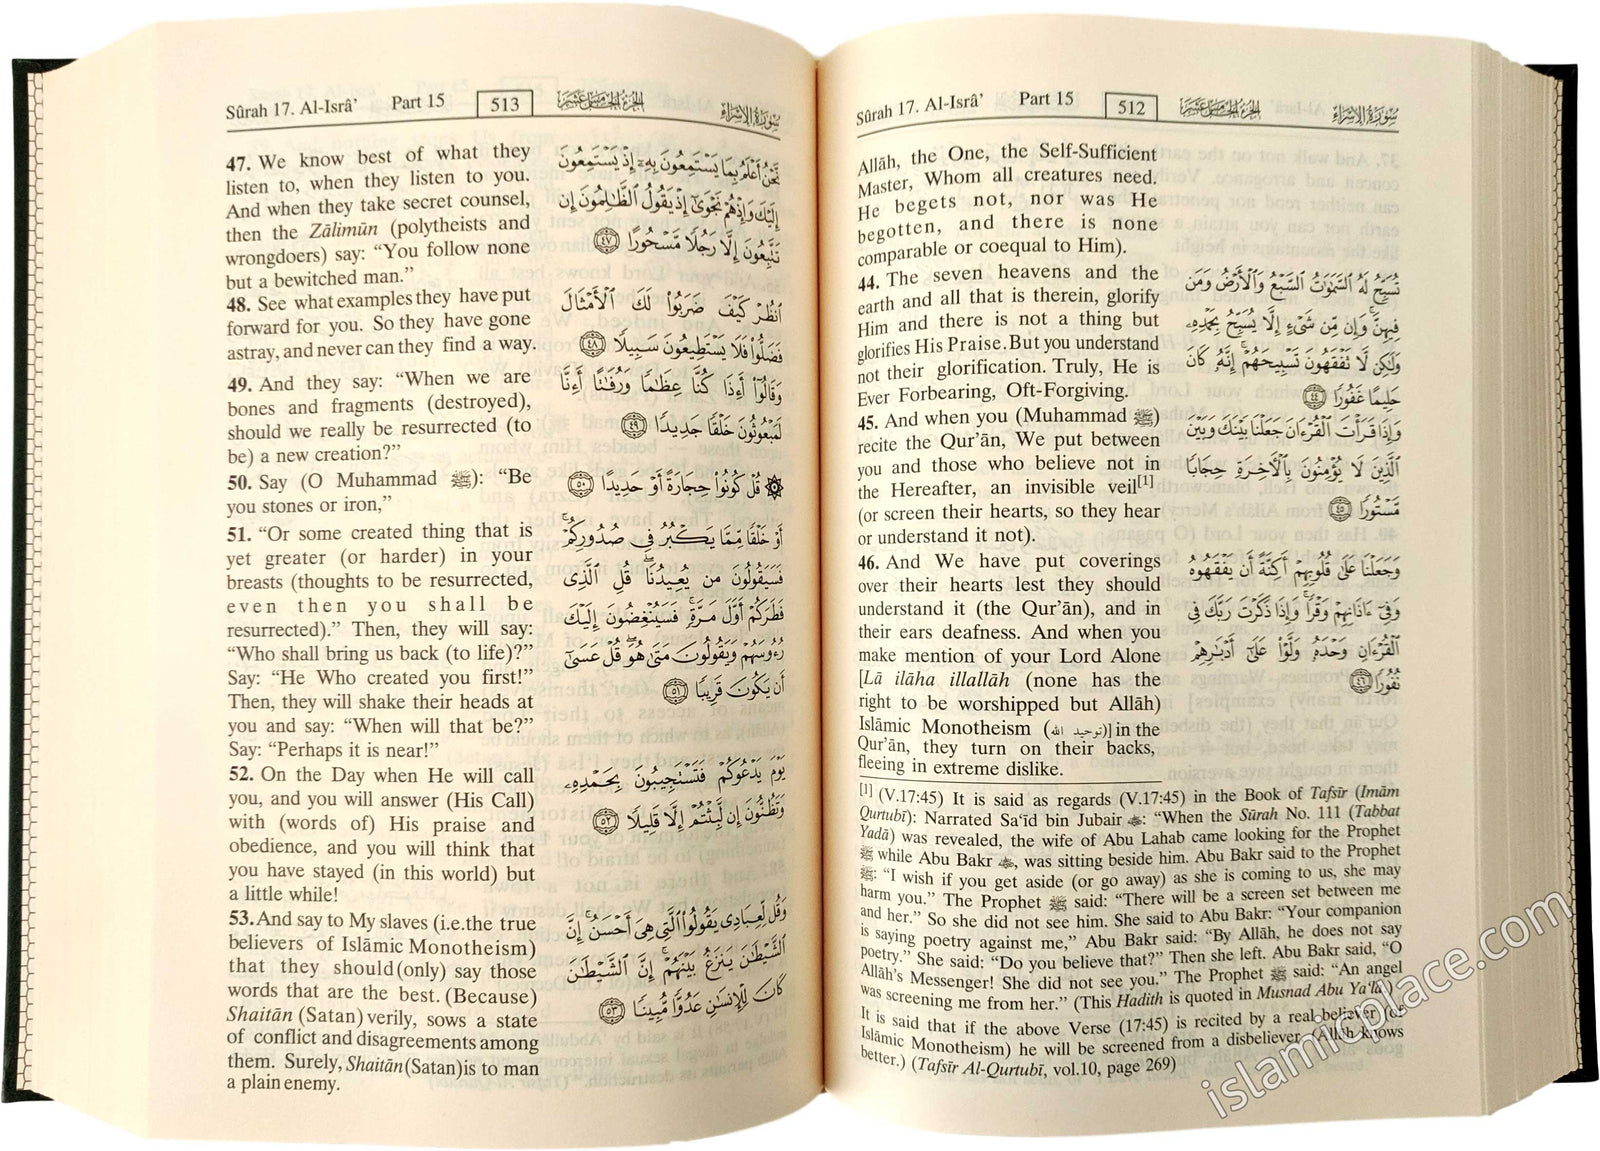 Sûrah 17. Al-Isrâ’ Part 15 512 الجزء الخامس عشر سورة الإسراء
Allâh, the One, the Self-Sufficient
Master, Whom all creatures need.
He begets not, nor was He
begotten, and there is none
comparable or coequal to Him).
44. The seven heavens and the
earth and all that is therein, glorify
Him and there is not a thing but
glorifies His Praise. But you understand
not their glorification. Truly, He is
Ever Forbearing, Oft-Forgiving.
45. And when you (Muhammad ﷺ)
recite the Qur’ân, We put between
you and those who believe not in
the Hereafter, an invisible veil[1]
(or screen their hearts, so they hear
or understand it not).
46. And We have put coverings
over their hearts lest they should
understand it (the Qur’ân), and in
their ears deafness. And when you
make mention of your Lord Alone
[Lâ ilâha illallâh (none has the
right to be worshipped but Allâh)
Islâmic Monotheism (توحيد الله)] in the
Qur’ân, they turn on their backs,
fleeing in extreme dislike.
تُسَبِّحُ لَهُ السَّمَٰوَٰتُ السَّبْعُ وَالْأَرْضُ وَمَن
فِيهِنَّ ۚ وَإِن مِّن شَىْءٍ إِلَّا يُسَبِّحُ بِحَمْدِهِۦ
وَلَٰكِن لَّا تَفْقَهُونَ تَسْبِيحَهُمْ ۗ إِنَّهُۥ كَانَ
حَلِيمًا غَفُورًا ٤٤
وَإِذَا قَرَأْتَ الْقُرْءَانَ جَعَلْنَا بَيْنَكَ وَبَيْنَ
الَّذِينَ لَا يُؤْمِنُونَ بِالْأَخِرَةِ حِجَابًا
مَّسْتُورًا ٤٥
وَجَعَلْنَا عَلَىٰ قُلُوبِهِمْ أَكِنَّةً أَن يَفْقَهُوهُ
وَفِىٓ ءَاذَانِهِمْ وَقْرًا ۚ وَإِذَا ذَكَرْتَ رَبَّكَ فِى
الْقُرْءَانِ وَحْدَهُۥ وَلَّوْا۟ عَلَىٰٓ أَدْبَٰرِهِمْ
نُفُورًا ٤٦
[1] (V.17:45) It is said as regards (V.17:45) in the Book of Tafsîr (Imâm
Qurtubî): Narrated Sa‘îd bin Jubair: “When the Sûrah No. 111 (Tabbat
Yadâ) was revealed, the wife of Abu Lahab came looking for the Prophet
ﷺ while Abu Bakr, was sitting beside him. Abu Bakr said to the Prophet
ﷺ: “I wish if you get aside (or go away) as she is coming to us, she may
harm you.” The Prophet ﷺ said: “There will be a screen set between me
and her.” So she did not see him. She said to Abu Bakr: “Your companion
is saying poetry against me,” Abu Bakr said: “By Allâh, he does not say
poetry.” She said: “Do you believe that?” Then she left. Abu Bakr said, “O
Allâh’s Messenger! She did not see you.” The Prophet ﷺ said: “An angel
was screening me from her.” (This Hadith is quoted in Musnad Abu Ya‘lâ)
It is said that if the above Verse (17:45) is recited by a real believer (of
Islâmic Monotheism) he will be screened from a disbeliever. (Allâh knows
better.) (Tafsîr Al-Qurtubî, vol.10, page 269)
Sûrah 17. Al-Isrâ’ Part 15 513 الجزء الخامس عشر سورة الإسراء
47. We know best of what they
listen to, when they listen to you.
And when they take secret counsel,
then the Zâlimûn (polytheists and
wrongdoers) say: “You follow none
but a bewitched man.”
48. See what examples they have put
forward for you. So they have gone
astray, and never can they find a way.
49. And they say: “When we are
bones and fragments (destroyed),
should we really be resurrected (to
be) a new creation?”
50. Say (O Muhammad ﷺ): “Be
you stones or iron,”
51. “Or some created thing that is
yet greater (or harder) in your
breasts (thoughts to be resurrected,
even then you shall be
resurrected).” Then, they will say:
“Who shall bring us back (to life)?”
Say: “He Who created you first!”
Then, they will shake their heads at
you and say: “When will that be?”
Say: “Perhaps it is near!”
52. On the Day when He will call
you, and you will answer (His Call)
with (words of) His praise and
obedience, and you will think that
you have stayed (in this world) but
a little while!
53. And say to My slaves (i.e.the true
believers of Islâmic Monotheism)
that they should (only) say those
words that are the best. (Because)
Shaitân (Satan) verily, sows a state
of conflict and disagreements among
them. Surely, Shaitân (Satan) is to man
a plain enemy.
نَّحْنُ أَعْلَمُ بِمَا يَسْتَمِعُونَ بِهِۦٓ إِذْ يَسْتَمِعُونَ
إِلَيْكَ وَإِذْ هُمْ نَجْوَىٰٓ إِذْ يَقُولُ الظَّٰلِمُونَ إِن
تَتَّبِعُونَ إِلَّا رَجُلًا مَّسْحُورًا ٤٧
انظُرْ كَيْفَ ضَرَبُوا۟ لَكَ الْأَمْثَالَ
فَضَلُّوا۟ فَلَا يَسْتَطِيعُونَ سَبِيلًا ٤٨
وَقَالُوٓا۟ أَءِذَا كُنَّا عِظَٰمًا وَرُفَٰتًا أَءِنَّا
لَمَبْعُوثُونَ خَلْقًا جَدِيدًا ٤٩
۞ قُلْ كُونُوا۟ حِجَارَةً أَوْ حَدِيدًا ٥٠
أَوْ خَلْقًا مِّمَّا يَكْبُرُ فِى صُدُورِكُمْ ۚ
فَسَيَقُولُونَ مَن يُعِيدُنَا ۖ قُلِ الَّذِى
فَطَرَكُمْ أَوَّلَ مَرَّةٍ ۚ فَسَيُنْغِضُونَ إِلَيْكَ
رُءُوسَهُمْ وَيَقُولُونَ مَتَىٰ هُوَ ۖ قُلْ عَسَىٰٓ
أَن يَكُونَ قَرِيبًا ٥١
يَوْمَ يَدْعُوكُمْ فَتَسْتَجِيبُونَ بِحَمْدِهِۦ
وَتَظُنُّونَ إِن لَّبِثْتُمْ إِلَّا قَلِيلًا ٥٢
وَقُل لِّعِبَادِى يَقُولُوا۟ الَّتِى هِىَ أَحْسَنُ ۚ إِنَّ
الشَّيْطَٰنَ يَنزَغُ بَيْنَهُمْ ۚ إِنَّ الشَّيْطَٰنَ
كَانَ لِلْإِنسَٰنِ عَدُوًّا مُّبِينًا ٥٣
islamicplace.com